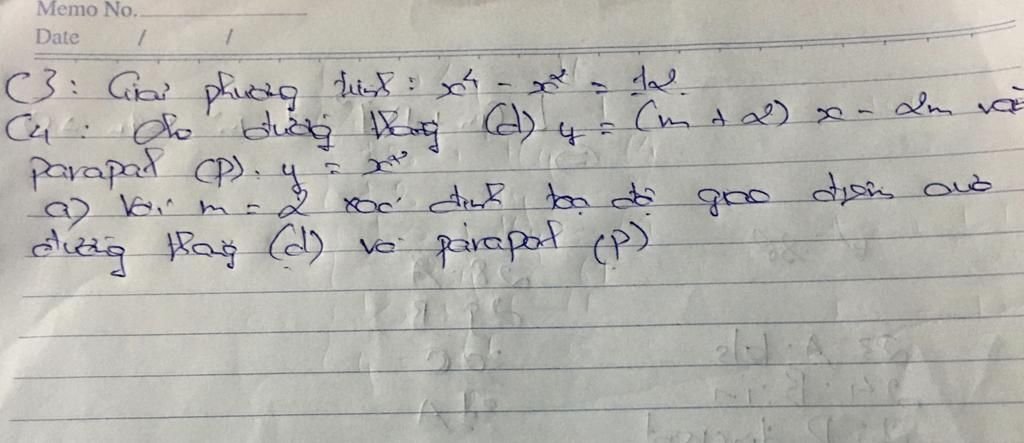 Memo No.
Date / /
C3: Giải phương trình: x⁴ - x² = 12.
C4: Cho đường thẳng (d) y = (m + 2) x - 2m và
parapol (P). y = x²
a) Với m = 2 xác định toạ độ giao điểm của
đường thẳng (d) và parapol (P)